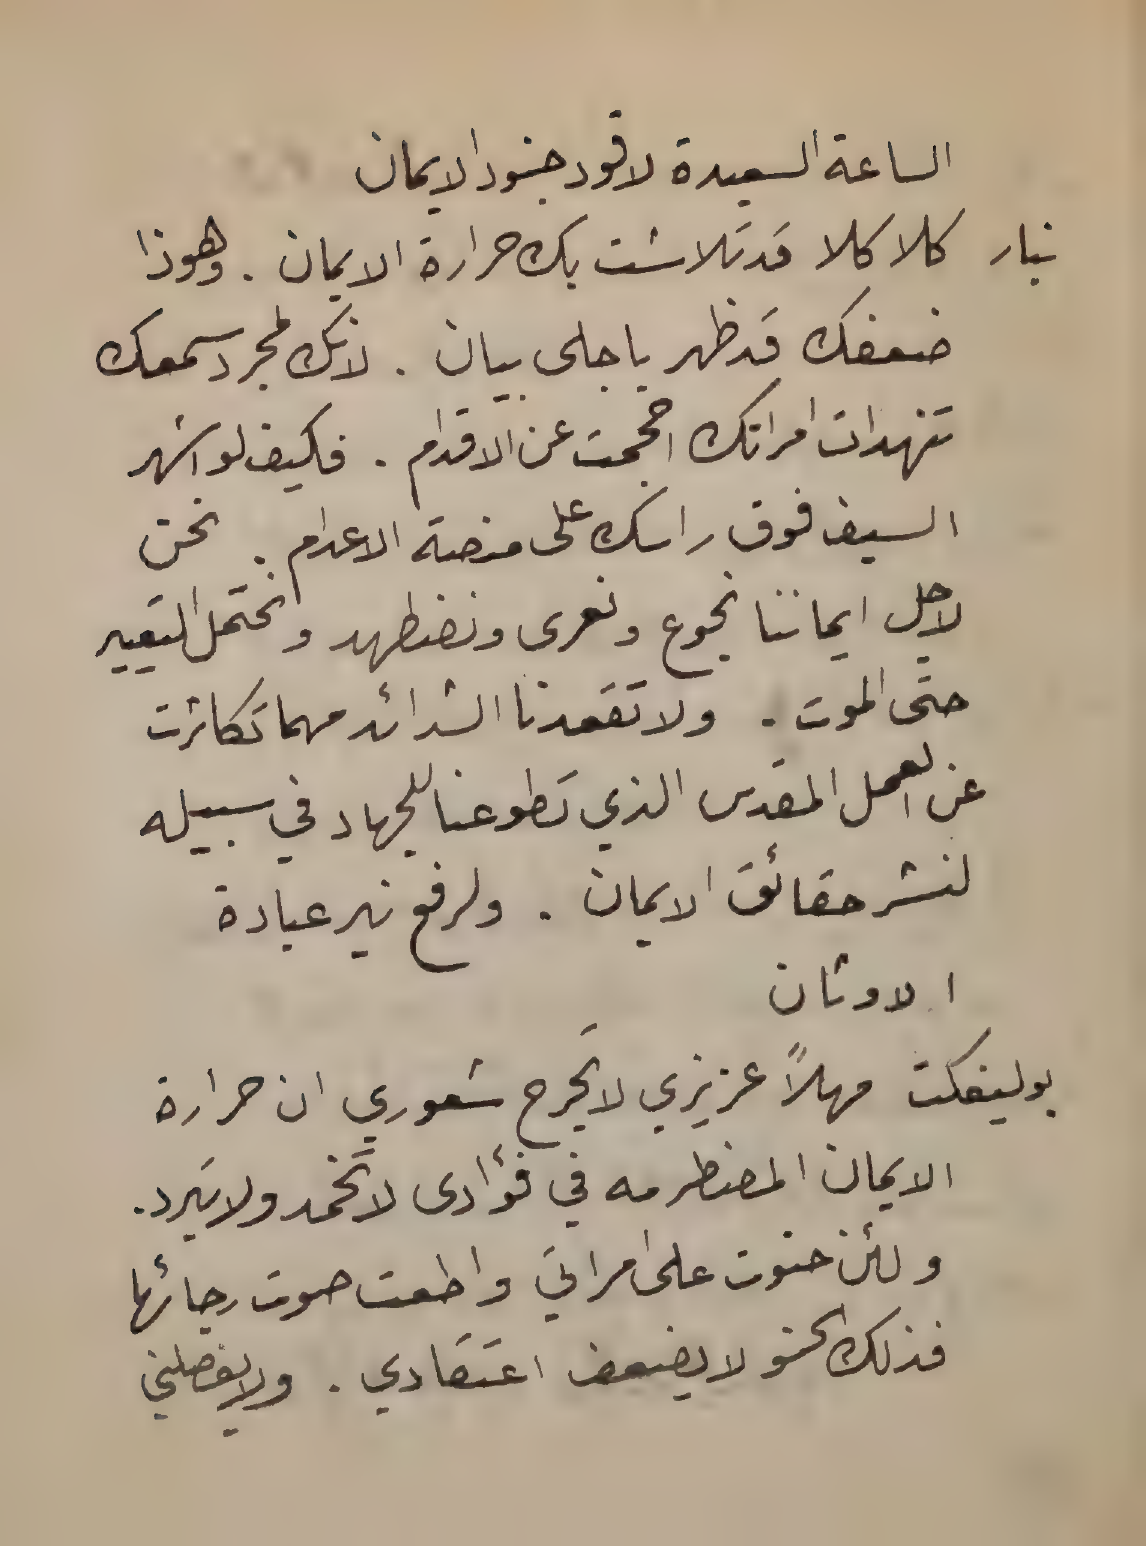 الساعة السعيدة لاقود جنود الايمان
نيار كلا كلا كلا قد تلاشت بك حرارة الايمان . وهوذا
ضعفك قد ظهر باجلى بيان . لانك لمجرد سمعك
تنهدات امراتك احجمت عن الاقدام . فكيف لو اشهر
السيف فوق راسك على منصة الاعدام . نحن
لاجل ايماننا نجوع ونعرى ونضطهد ونحتمل التعيير
حتى الموت . ولا تقعدنا الشدائد مهما تكاثرت
عن العمل المقدس الذي تطوعنا للجهاد في سبيله
لنشر حقائق الايمان . ولرفع نير عبادة
الاوثان
بوليفكت مهلاً عزيزي لا تجرح شعوري ان حرارة
الايمان المضطرمه في فؤادى لا تخمد ولا تبرد .
ولئن حنوت على امراتي واطعت صوت رجائها
فذلك الحنو لا يضعف اعتقادي . ولا يفصلني